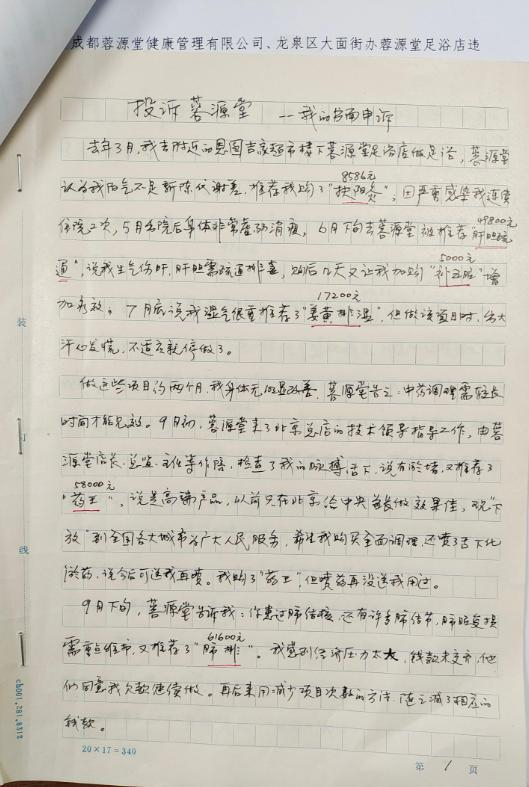 成都蓉源堂健康管理有限公司、龙泉区大面街办蓉源堂足浴店违
投诉蓉源堂 --我的书面申诉
去年3月,我去附近的恩图吉家超市楼下蓉源堂足浴店做足浴,蓉源堂
8586元
认为我阳气不足新陈代谢差,推荐我购了"扶阳灸",因严重感染我连续
49800元
住院2次,5月出院后身体非常虚弱消瘦,6月下旬去蓉源堂被推荐"肝胆疏
5000元
通",说我生气伤肝,肝胆需疏通排毒,购后几天又让我加购"补五脏"增
17200元
加多效。7月底说我湿气很重推荐了"姜黄排湿",但做该项目时,出大
汗心发慌,不适应就停做了。
做这些项目约两个月,我身体无明显改善,蓉源堂告之:中药调理需较长
时间才能见效。9月初,蓉源堂来了北京总店的技术领导指导工作,由蓉
源堂店长、总监、主任等作陪,检查了我的脉搏舌下,说有瘀堵,又推荐了
58000元
"药王",说是高端产品,以前只在北京给中央首长做效果佳,现"下
放"到全国各大城市为广大人民服务,希望我购买全面调理,还喷了舌下化
瘀药,说今后可送我再喷。我购了"药王",但喷药再没送我用过。
9月下旬,蓉源堂告诉我:你患过肺结核,还有许多肺结节,肺部受损
61600元
需重点维护,又推荐了"肺排"。我感到经济压力太大,钱款未交齐,他
们同意我欠款继续做。再后来用减少项目次数的方法,随之减了相应的
钱款。
装
订
线
cb001.281.8312
20×17=340
第 1 页